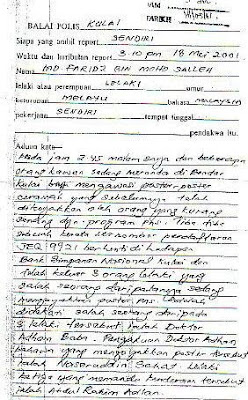 BALAI POLIS KULAI
TARIKH
Siapa yang ambil report SENDIRI
Waktu dan haribulan report 3.10 pm 18 Mei 2001
Nama MD FARIDZ BIN MOHD SALLEH
lelaki atau perempuan LELAKI umur
keturunan MELAYU bahasa MALAYSIA
pekerjaan SENDIRI tempat tinggal
pendakwa itu.
Aduan kata—
Pada jam 2.45 malam saya dan beberapa
orang kawan sedang meronda di Bandar
Kulai bagi mengawasi poster-poster
ceramah yang sebelumnya telah
dikoyakkan oleh orang yang kurang
senang dgn program Pas. Tiba-tiba
sebuah kereta bernombor pendaftaran
JEQ 9921 berhenti di hadapan
Bank Simpanan Nasional Kulai dan
telah keluar 3 orang lelaki yang
salah seorang daripadanya sedang
mengoyakkan poster Pas.
didapati salah seorang daripada
3 lelaki tersebut ialah Doktor
Adham Baba. Pengakuan Doktor Adham
yang mengoyakkan poster tersebut
ialah Sahat lelaki
yang memandu kenderaan tersebut
ialah Abdul Rahim